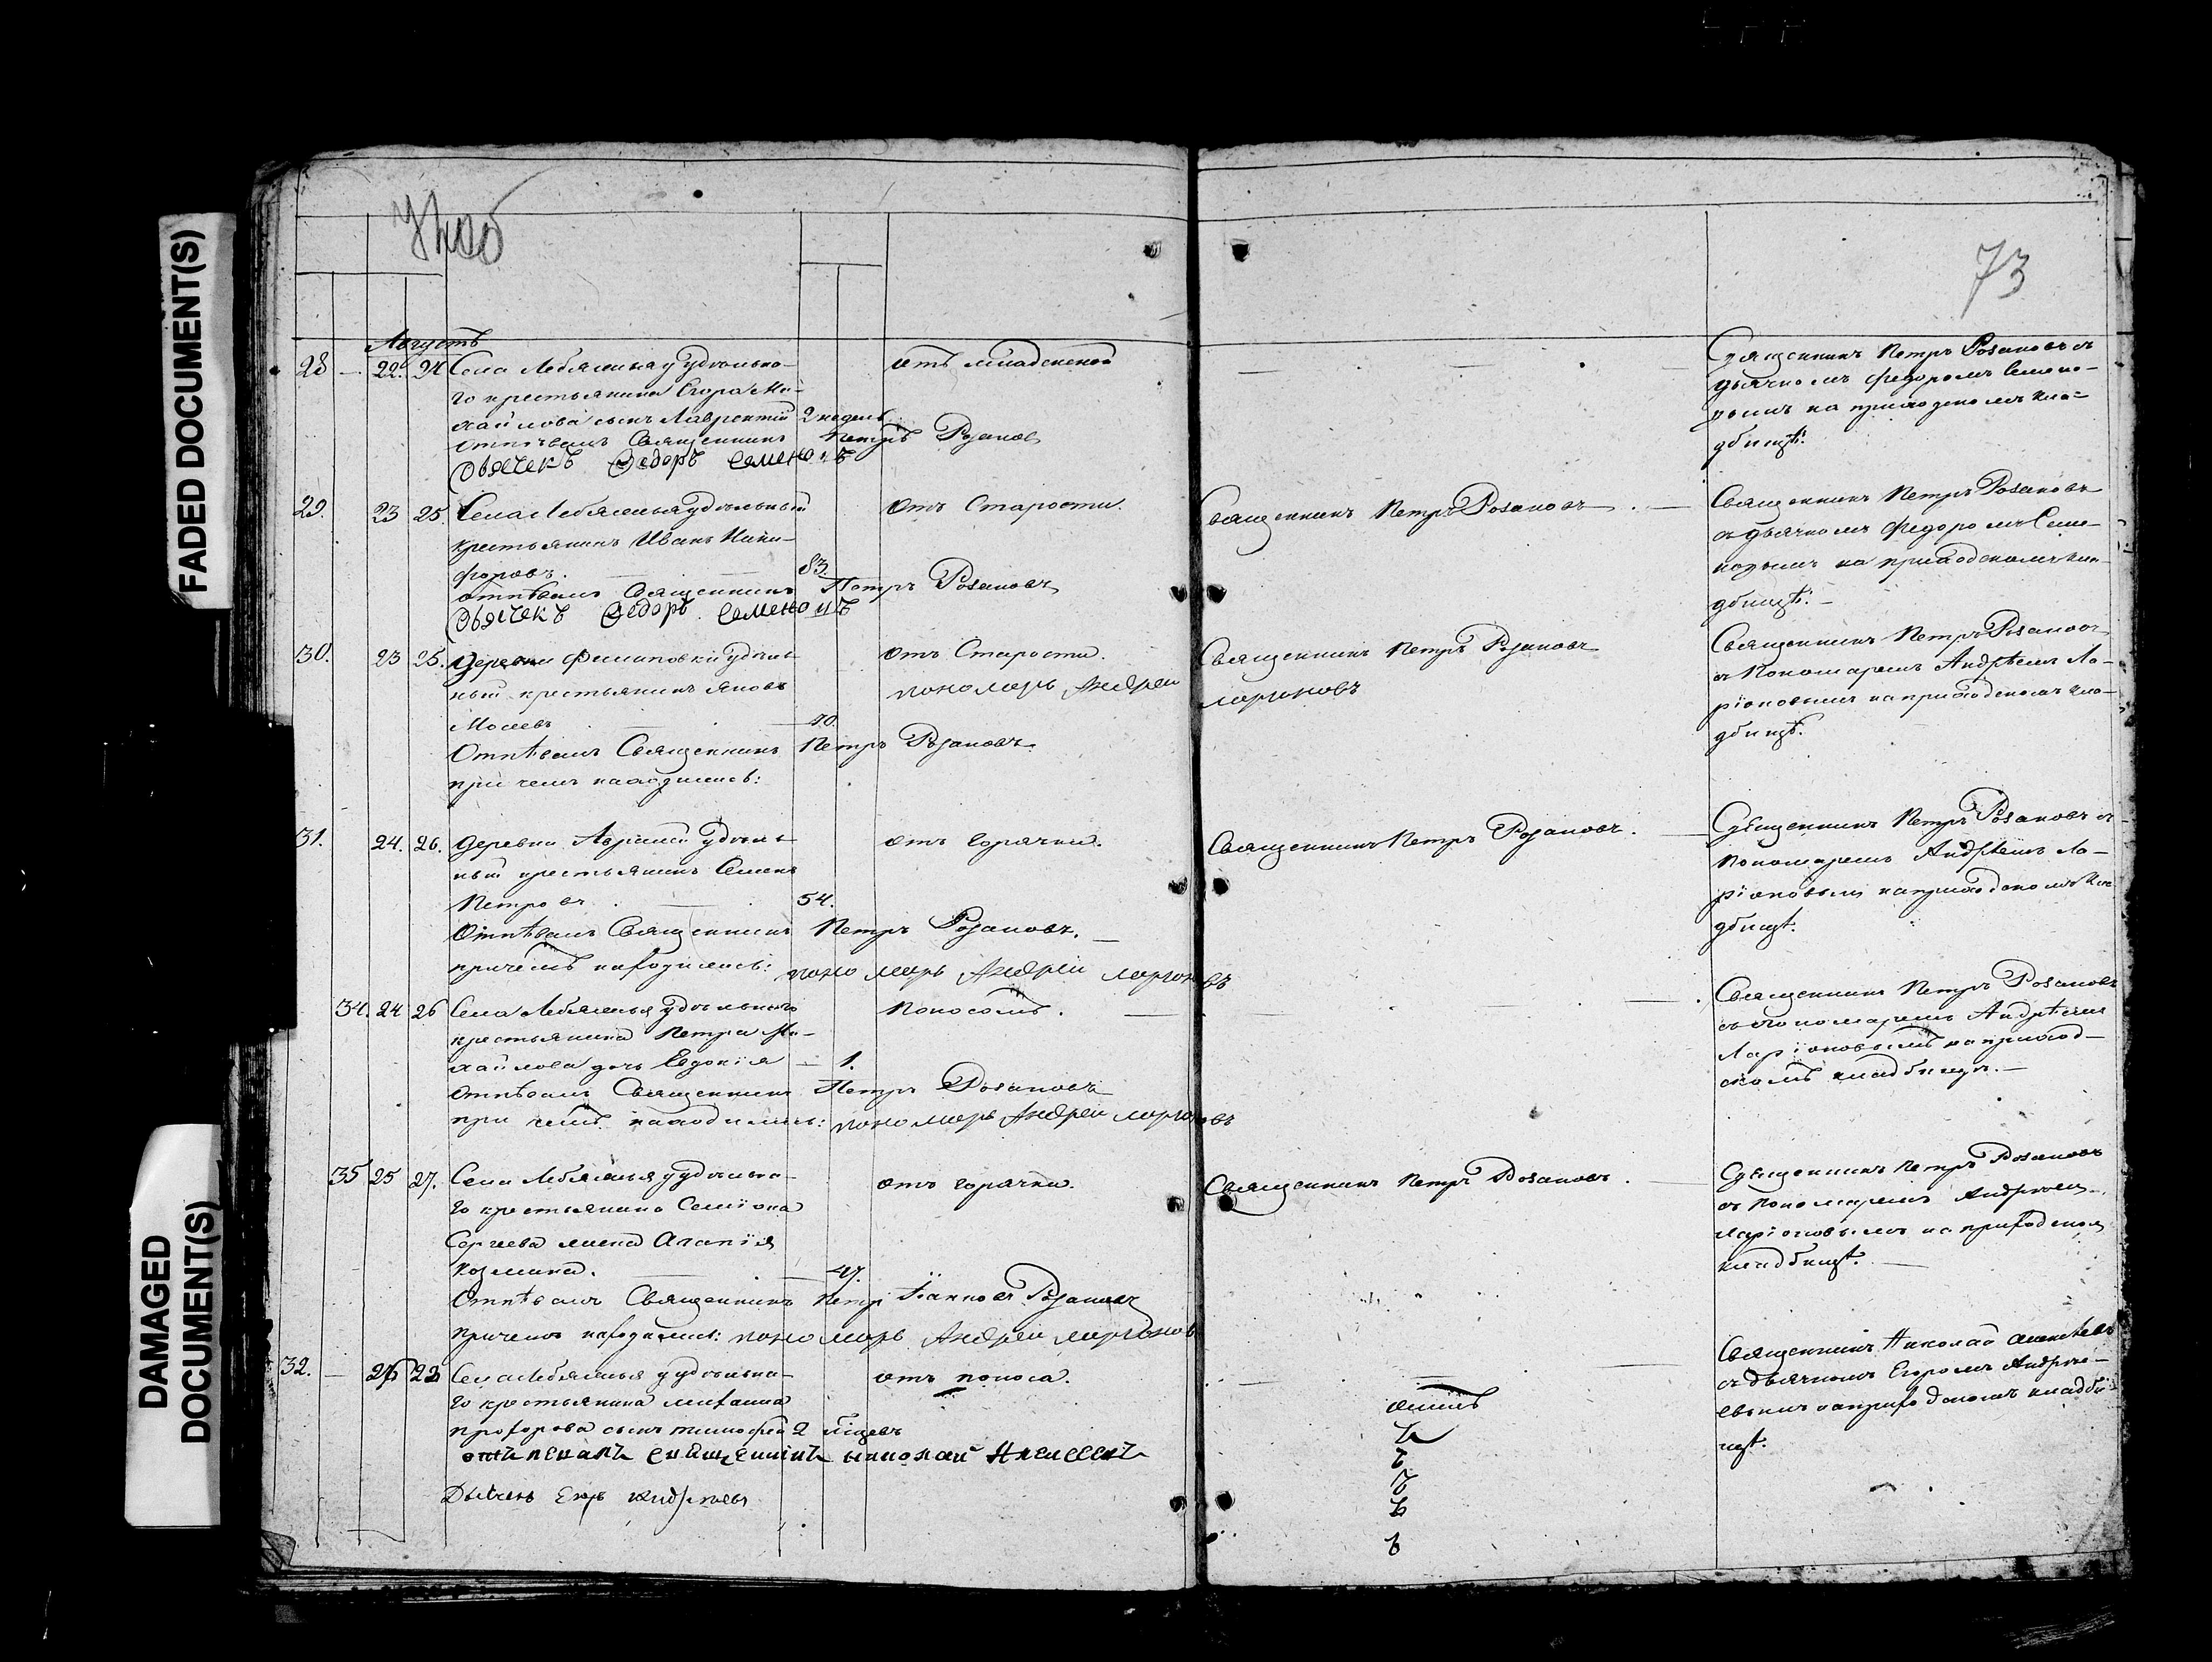 FADED DOCUMENT(S)
DAMAGED
DOCUMENT(S)
73
Августъ
28 — 22. 24 Села Лебяжья удѣльна-
го крестьянина Егора Ми-
хайлова сынъ Лаврентій 2 недель
отъ младенской
Отпѣвалъ Священникъ Петръ Розановъ
Дьячекъ Федоръ Семено
Священникъ Петръ Розановъ съ
дьячкомъ Федоромъ Семено-
вымъ на приходскомъ кла-
дбищѣ.
29. 23 25. Села Лебяжья удѣльный
крестьянинъ Иванъ Ники-
форовъ. — 83.
отъ Старости.
отпѣвалъ Священникъ Петръ Розановъ
Дьячекъ Федоръ Семено
Священникъ Петръ Розановъ
Священникъ Петръ Розановъ
съ дьячкомъ Федоромъ Семе-
новымъ на приходскомъ кла-
дбищѣ. —
30. 23 25. Деревни Филиповки удѣль-
ный крестьянинъ Яковъ
Отъ Старости.
Отпѣвалъ Священникъ Петръ Розановъ
при чемъ находились:
пономарь Андрей
Ларионовъ
Священникъ Петръ Розановъ
Священникъ Петръ Розановъ
съ Пономаремъ Андрѣемъ Ла-
ріоновымъ на приходскомъ кла-
дбищѣ.
31. 24. 26. Деревни удѣль-
ный крестьянинъ Семенъ
Петровъ — 54.
отъ горячки.
Отпѣвалъ Священникъ Петръ Розановъ. —
причемъ находились: пономарь Андрей Ларионовъ
Священникъ Петръ Розановъ.
Священникъ Петръ Розановъ съ
Пономаремъ Андрѣемъ Ла-
ріоновымъ на приходскомъ кла
дбищѣ.
34. 24 26 Села Лебяжья удѣльнаго
крестьянина Петра Ми-
хайлова дочь Евдокія — 1.
Поносомъ.
отпѣвалъ Священникъ Петръ Розановъ
при чемъ находились: пономарь Андрей Ларионовъ
Священникъ Петръ Розановъ
съ пономаремъ Андрѣемъ
Ларіоновымъ на приход-
скомъ кладбищѣ. —
35 25 27. Села Лебяжья удѣльна-
го крестьянина Семіона
Сергеева жена Агапія
Козмина. — 47.
отъ горячки.
Отпѣвалъ Священникъ Петръ Іанновъ Розановъ
Причемъ находились: пономарь Андрей Ларионовъ
Священникъ Петръ Розановъ.
Священникъ Петръ Розановъ
съ Пономаремъ Андрѣемъ
Ларіоновымъ на приходскомъ
кладбищѣ. —
32. — Села Лебяжья удѣльна-
го крестьянина
Прохорова сынъ Тимофей 2
отъ поноса.
отпевалъ священникъ николай Алексеевъ
Дьячекъ Егоръ Андреевъ
Священникъ Николай Алексѣевъ
съ дьячкомъ Егоромъ Андрѣе-
вымъ на приходскомъ кладби-
щѣ.